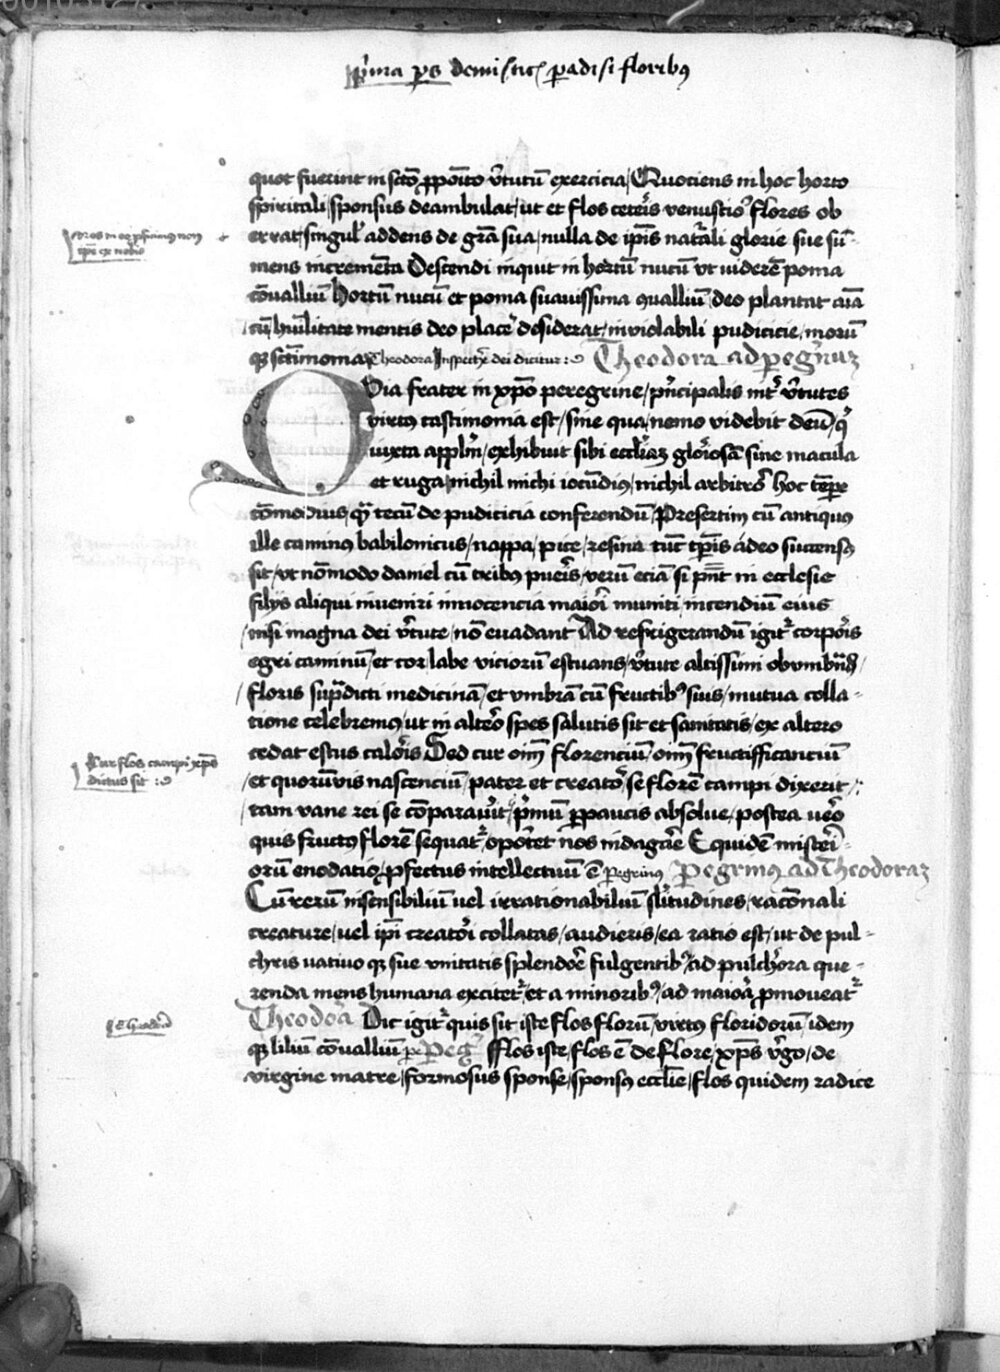 p̄ma ps de misticꝭ ꝑadisi floribꝰ
quot fuerint in scō ꝓpoīto v̄tutū exercicia / Quotiens in hoc horto
spiritali / sponsus deambulat / ut et flos ceteris venustior flores ob
errat / singul' addens de gr̄a sua / nulla de ip̄is nat'ali glorie sue su-
mens incremēta Descendi inquit in hortū nucū vt viderē poma
cōvalliū hortū nucū et poma suavissima qvalliū deo plantat aīa
cū hūilitate mentis deo placē desiderat / inviolabili pudicicie / morū
qꝫ sctīmonia Theodora Inspectꝰ dei dicitur Theodora ad peg'nuꝫ
Quia frater in xp̄o peregrine / p'ncipalis int' v̄tutes
virtꝰ castimonia est / sine qua / nemo videbit deū / q̄
iuxta ap̄plm̄ / exhibuit sibi eccl'iaꝫ gl'osā sine macula
et ruga / nichil michi iocūdiꝰ / nichil arbitror hoc tꝑe
cōmodius / qꝫ tecū de pudicicia conferendū / Presertim cū antiquꝰ
ille caminꝰ babilonicus / nappa / pice / resina tūc tꝑis adeo succensꝰ
sit / vt nōmodo daniel cū tribꝰ pueris / verū eciā si p̄nt in ecclesie
filijs aliqui inveniri innocencia maiori muniti / incendiū eius
/ nisi magna dei v̄tute / nō evadant Ad refrigerandū igit' corporis
egri caminū / et cor labe viciorū estuans / v̄tute altissimi obumbn̄d
/ floris sup̄dicti medicinā / et vmbrā cū fructibꝰ suis / mutua colla-
tione celebremꝰ / ut in altero spes salutis sit et sanitatis / ex altero
cedat estus caloris Sed cur oīm florenciū / oīm fructifficanciū
/ et quorūvis nascenciū / pater et creator se florē campi dixerit /
/ tam vane rei se cōparavit / p'mū ꝑpaucis absolve / postea vero
quis fructꝰ florē sequat' / oportet nos indagare Equidē misteri-
orū enodatio / ꝑfectus intellectuū ē peregrinꝰ Pegrinꝰ ad Theodoraꝫ
Cū rerū insensibiliū vel irrationabiliū sl'itudines / racōnali
creature / vel ip̄i creatori collatas / audieris / ea ratio est / ut de pul-
chris vativo qꝫ sue vnitatis splendore fulgentibꝰ / ad pulchiora que-
renda mens humana excitet' / et a minoribꝰ / ad maiora ꝓmoveat'
Theodora Dic igit' quis sit iste flos florū / virtꝰ floridorū / idem
qꝫ liliū cōvalliū Peg' Flos iste / flos ē de flore / xp̄s v̄go / de
virgine matre / formosus sponse / sponsꝰ eccl'ie / flos quidem radice
Cur flos campi xp̄s
dictus sit